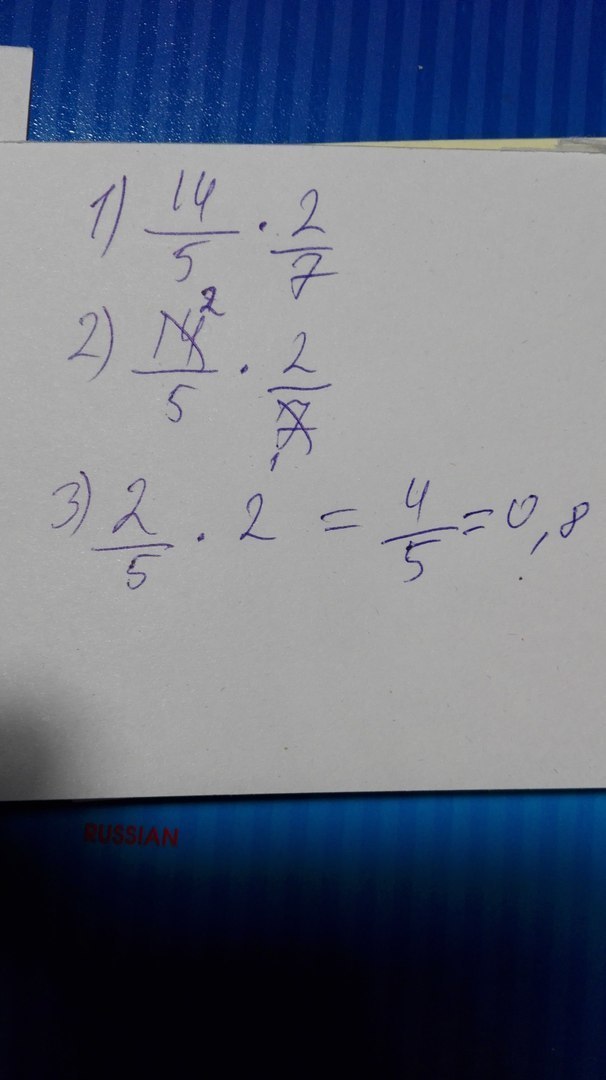 1) 14/5 · 2/7
2) 14/5 2 · 2/7 1
3) 2/5 · 2 = 4/5 = 0,8
RUSSIAN